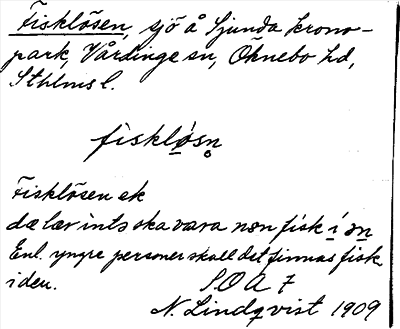 Fisklösen, sjö å Sjunda krono-
park, Vårdinge sn, Öknebo hd,
Sthlms l.
fisklø̀sn̥
Fisklösen ek
dæ lær ints ska vara nøn fisk í ən
Enl. yngre personer skall det finnas fisk
i den.
S.O.A 7
N. Lindqvist 1909